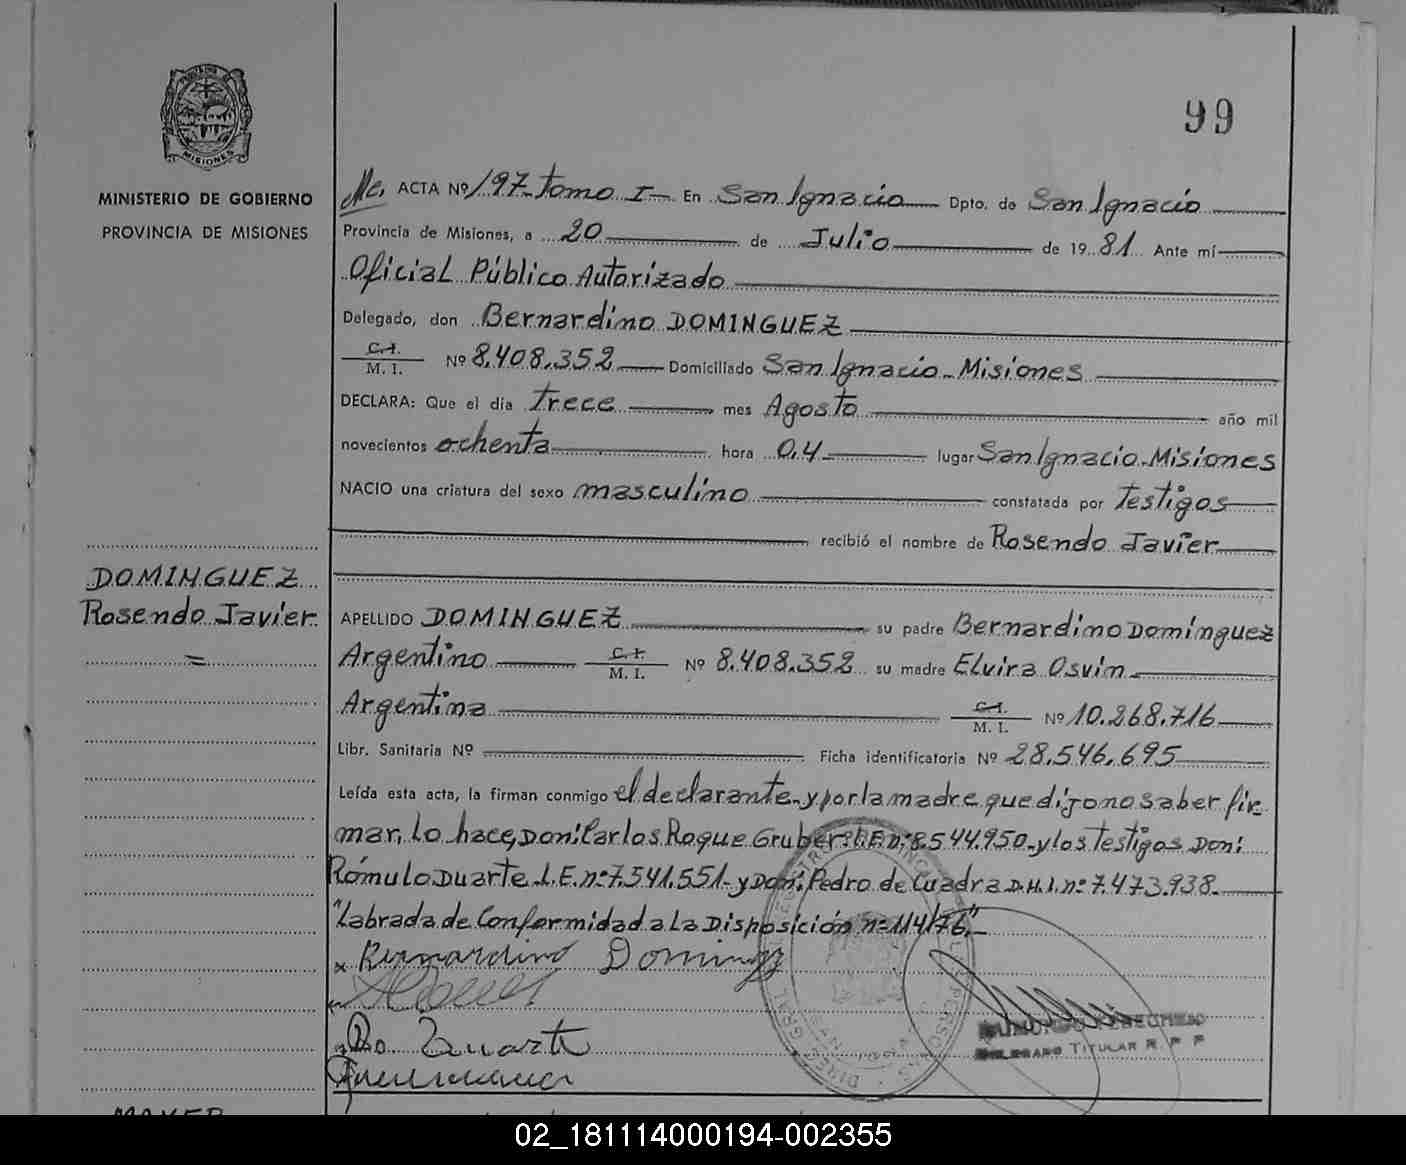 99
MISIONES
MINISTERIO DE GOBIERNO
PROVINCIA DE MISIONES
DOMINGUEZ
Rosendo Javier
=
ACTA Nº 197 Tomo I - En San Ignacio Dpto. de San Ignacio
Provincia de Misiones, a 20 de Julio de 1981 Ante mí
Oficial Público Autorizado
Delegado, don Bernardino DOMINGUEZ
C.I. M. I. Nº 8.408.352 Domiciliado San Ignacio - Misiones
DECLARA: Que el día trece mes Agosto año mil
novecientos ochenta hora 0,4 lugar San Ignacio - Misiones
NACIO una criatura del sexo masculino constatada por testigos
recibió el nombre de Rosendo Javier
APELLIDO DOMINGUEZ su padre Bernardino Domínguez
Argentino C.I. M. I. Nº 8.408.352 su madre Elvira Osvin
Argentina C.I. M. I. Nº 10.268.716
Libr. Sanitaria Nº Ficha identificatoria Nº 28.546.695
Leída esta acta, la firman conmigo el declarante - y por la madre que dijo no saber fir-
mar, Lo hace, Don: Carlos Roque Gruber: L.E. nº 8.544.950 - y los testigos Don:
Rómulo Duarte L.E. nº 7.541.551 - y Don: Pedro de Cuadra D.N.I. nº 7.473.938.
"Labrada de Conformidad a La Disposición nº 114/76" -
x Bernardino Doming
Duarte
TITULAR R P P
02_181114000194-002355